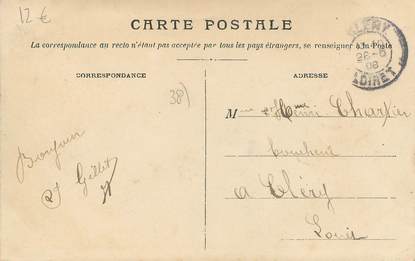 12 €
CARTE POSTALE
La correspondance au recto n'étant pas acceptée par tous les pays étrangers, se renseigner à la Poste
CLERY
26-6
08
LOIRET
CORRESPONDANCE
ADRESSE
38)
Mme Henri Charpier
Bonjour
boucher
Gillet
a Cléry
Loiret